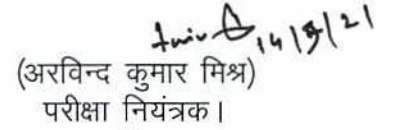 14/9/21
(अरविन्द कुमार मिश्र)
परीक्षा नियंत्रक।